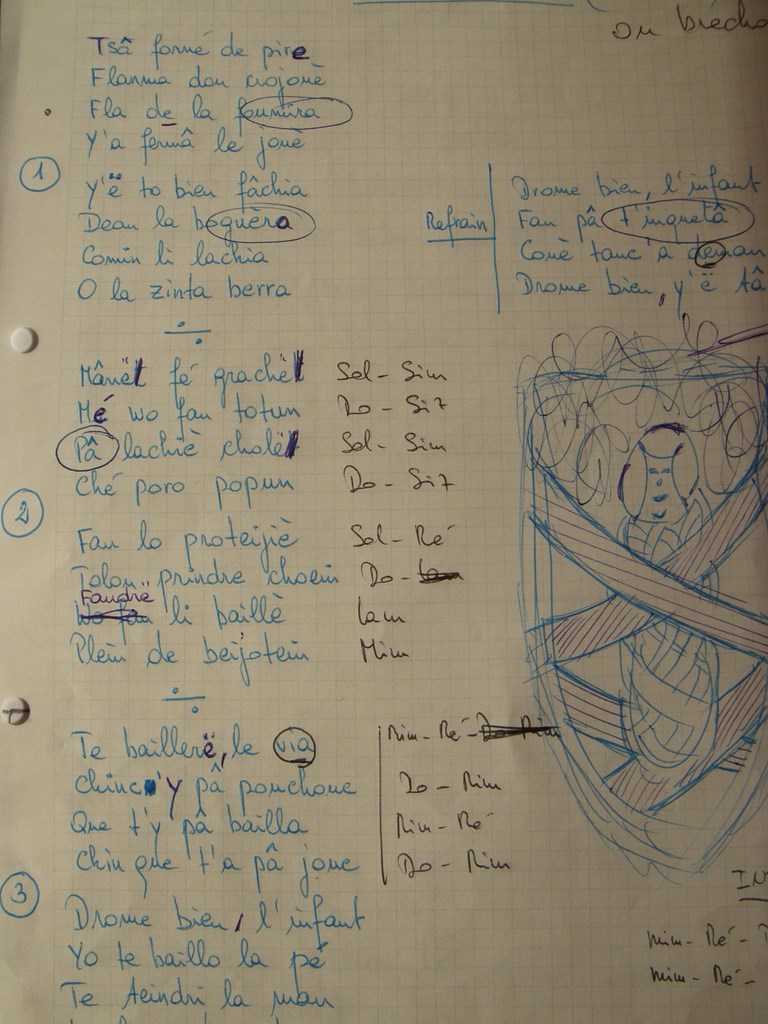 ou brècho
Tsâ formé de pire
Flamma dou crojouè
Fla de la foumîra
Y'a fermâ le jouè
1
Y'ë to bien fâchia
Dean la boguèra
Comin li lachia
O la zinta berra
÷
Refrain
Drome bien, l'infant
Fau pâ t'inquetâ
Couè tanc'a deman
Drome bien, y'ë tâ
Mânët fé grachët Sol - Sim
Mé wo fau totun Do - Si7
Pâ lachiè cholët Sol - Sim
Ché poro popun Do - Si7
2
Fau lo proteijiè Sol - Ré
Tolon prindre choein Do -
Faudrë li baillè Lam
Plein de beijotein Mim
÷
Te baillerë, le via Mim - Ré -
Chinc'y pâ pouchouc Do - Mim
Que t'y pâ bailla Mim - Ré
Chin que t'a pâ jouc Do - Mim
3
Drome bien, l'infant
Yo te baillo la pé
Te teindri la man
Mim - Ré -
Mim - Ré -